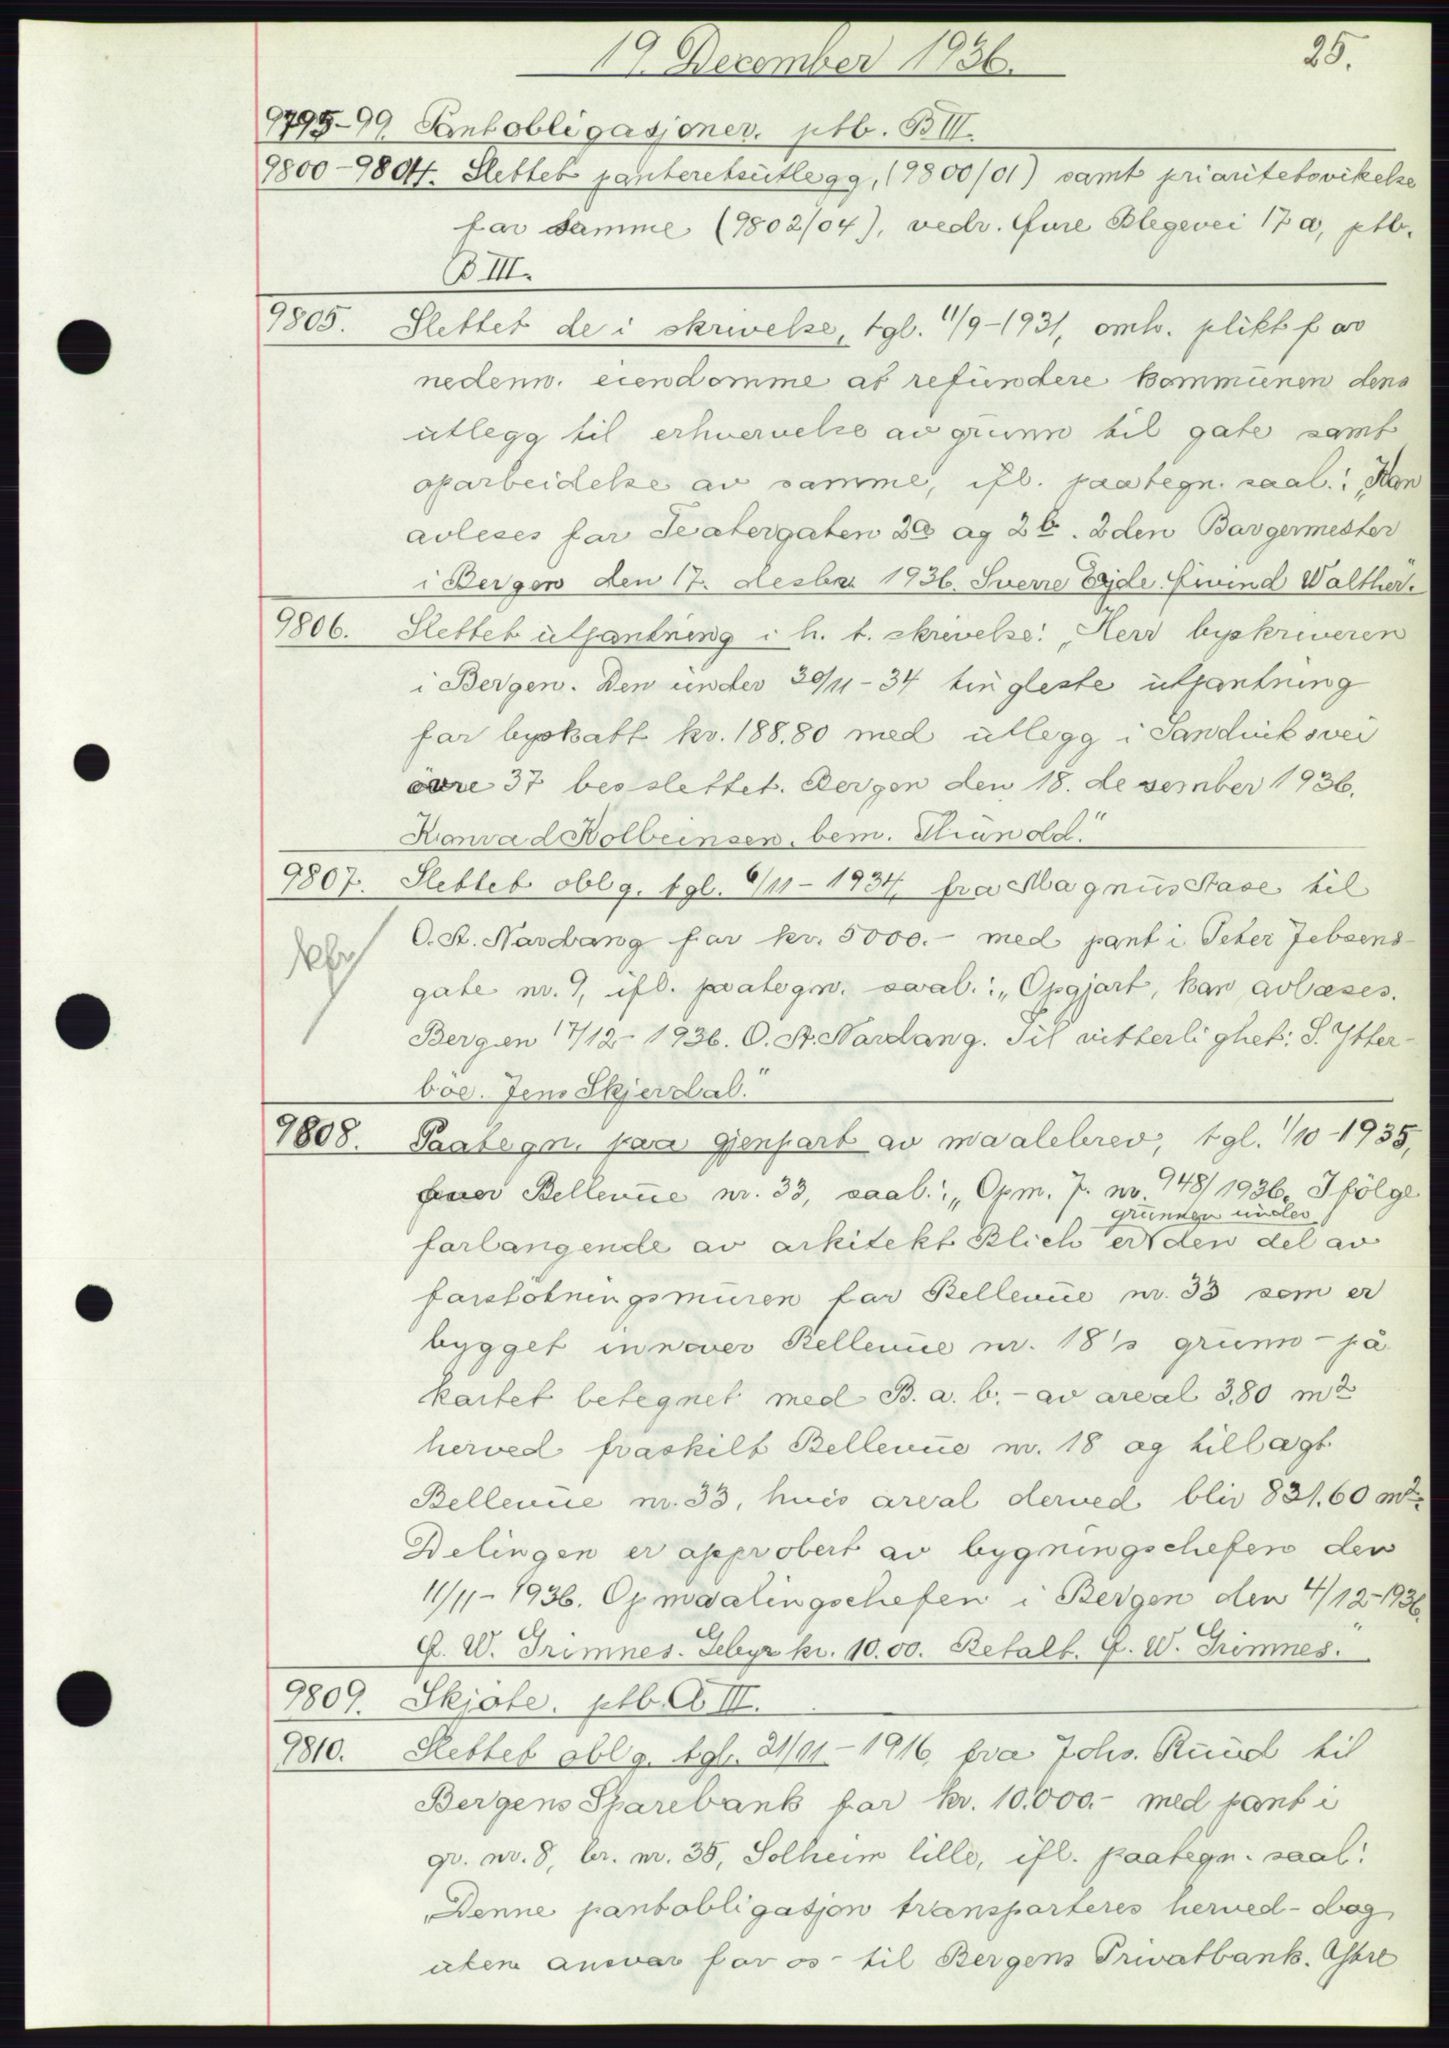 19. December 1936.
25.
9795-99. Pantobligasjoner. ptb. B III.
9800-9804. Slettet panteretsutlegg, (9800/01) samt prioritetsvikelse
for samme (9802/04), vedr. Øvre Blegevei 17a, ptb.
B III.
9805. Slettet de i skrivelse, tgl. 11/9-1931, omh. plikt for
nedenn. eiendomme at refundere kommunen dens
utlegg til erhvervelse av grunn til gate samt
oparbeidelse av samme, ifl. paategn. saal.: „Kan
avleses for Teatergaten 2a og 2b. 2den Borgermester
i Bergen den 17. desbr. 1936. Sverre Eide. Eivind Walther."
9806. Slettet utpantning i h. t. skrivelse: „Herr byskriveren
i Bergen. Den under 30/11-34 tingleste utpantning
for byskatt kr. 188.80 med utlegg i Sandviksvei
övre 37 bes slettet. Bergen den 18. desember 1936.
Konrad Kolbeinsen. bem. Thunold."
9807. Slettet oblg. tgl. 6/11-1934, fra Magnus Aase til
O. A. Nordang for kr. 5000.- med pant i Peter Jebsens-
gate nr. 9, ifl. paategn. saal.: „Opgjort, kan avlæses.
Bergen 17/12-1936. O. A. Nordang. Til vitterlighet: S. Ytter-
böe. Jens Skjerdal."
9808. Paategn. paa gjenpart av maalebrev, tgl. 1/10-1935,
over Bellevue nr. 33, saal.: „Opm. J. nr. 948/1936. Ifölge
grunnen under
forlangende av arkitekt Blich er den del av
forstötningsmuren for Bellevue nr. 33 som er
bygget innover Bellevue nr. 18's grunn - på
kartet betegnet med B. a. b. - av areal 3,80 m2
herved fraskilt Bellevue nr. 18 og tillagt
Bellevue nr. 33, hvis areal derved bliv 831.60 m2.
Delingen er approbert av bygningschefen den
11/11-1936. Opmaalingschefen i Bergen den 4/12-1936.
G. W. Grimnes. Gebyr kr. 10.00. Betalt. G. W. Grimnes."
9809. Skjøte. ptb. A III.
9810. Slettet oblg. tgl. 21/01-1916, fra Johs. Ruud til
Bergens Sparebank for kr. 10.000.- med pant i
gr. nr. 8, br. nr. 35, Solheim lille, ifl. paategn. saal:
„Denne pantobligasjon transporteres herved - dog
uten ansvar for os - til Bergens Privatbank. Østre